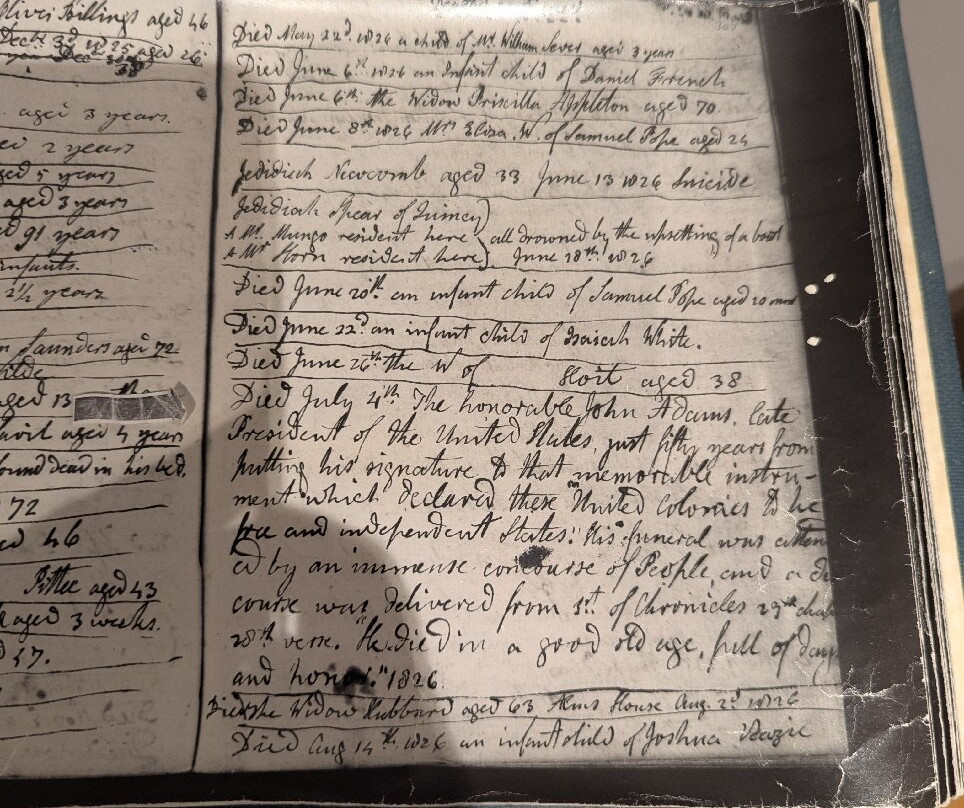 Oliver Billings aged 46
Dec. 3d 1825 aged 26
38
aged 3 years.
2 years
aged 5 years
aged 3 years
91 years
infants.
2½ years
Saunders aged 72
aged 13
aged 4 years
found dead in his bed.
72
46
Pittee aged 43
aged 3 weeks.
57.
Died May 22d 1826 a child of Mr. William Sever aged 3 years
Died June 6th 1826 an Infant child of Daniel French
Died June 6th the Widow Priscilla Appleton aged 70.
Died June 8th 1826 Mrs Eliza W. of Samuel Pope aged 24
Jedidiah Newcomb aged 33 June 13 1826 Suicide
Jedidiah Spear of Quincy
A Mr. Mungo resident here } all drowned by the upsetting of a boat
A Mr Horn resident here } June 18th 1826
Died June 20th an infant child of Samuel Pope aged 20
Died June 22d an infant child of Isaiah White.
Died June 26th the W of Hoit aged 38
Died July 4th The honorable John Adams, late
President of the United States, just fifty years from
putting his signature to that memorable instru-
ment which declared these "United Colonies to be
free and independent States." His funeral was atten
ed by an immense concourse of People, and a di
course was delivered from 1st of Chronicles 29th chap
28th verse. "He died in a good old age, full of days
and honor." 1826.
Died the Widow Hubbard aged 63 Alms House Aug. 2d 1826
Died Aug 14th 1826 an infant child of Joshua